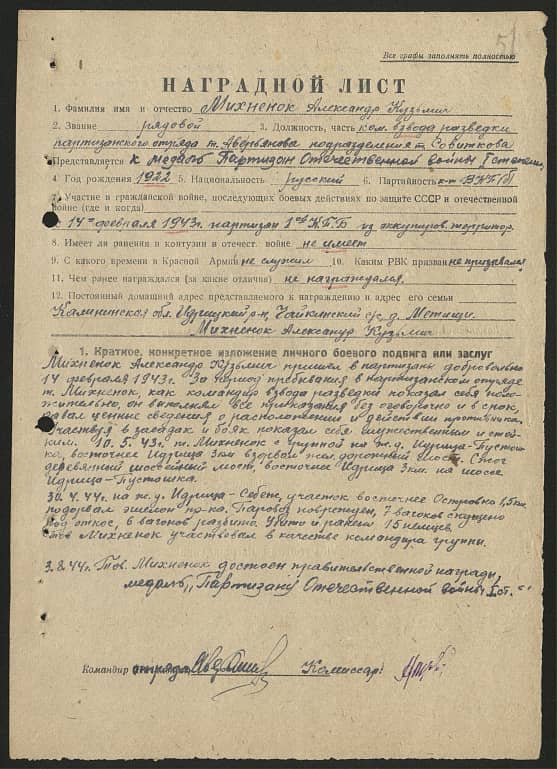 51
Все графы заполнять полностью
НАГРАДНОЙ ЛИСТ
1. Фамилия имя и отчество Михненок Александр Кузьмич
2. Звание рядовой 3. Должность, часть ком. взвода разведки
партизанского отряда т. Аверьянова подразделения т. Совиткова
Представляется к медаль „Партизан Отечественной войны I степени
4. Год рождения 1922 5. Национальность русский 6. Партийность к-т ВКП(б)
7. Участие в гражданской войне, последующих боевых действиях по защите СССР и отечественной
войне (где и когда)
с 14го февраля 1943г. партизан 1ой К.П.Б из оккупиров. территор.
8. Имеет ли ранения и контузии в отечест. войне не имеет
9. С какого времени в Красной Армии не служил 10. Каким РВК призван не призывался
11. Чем ранее награждался (за какие отличия) не награждался.
12. Постоянный домашний адрес представляемого к награждению и адрес его семьи
Калининская обл. Идрицкий р-н, Чайкинский с/с, д. Метищи.
Михненок Александр Кузьмич
1. Краткое, конкретное изложение личного боевого подвига или заслуг
Михненок Александр Кузьмич пришёл в партизаны добровольно
14 февраля 1943г. За период пребывания в партизанском отряде
т. Михненок, как командир взвода разведки показал себя поло-
жительно, он выполнял все приказания без оговорочно и в срок,
давал ценные сведения о расположении и действии противника.
Участвуя в засадах и боях показал себя мужественным и стой-
ким. 10.5.43г. т. Михненок с группой на ж.д. Идрица-Пустош-
ка, восточнее Идрица 3км взорвал жел. дорожный мост. Сжог
деревянный шоссейный мост, восточнее Идрица 3км. на шоссе
Идрица-Пустошка.
30.4.44г. на ж.д. Идрица-Себеж, участок восточнее Островно 1,5км
подорвал эшелон пр-ка. Паровоз повреждён, 7 вагонов спущено
под откос, 8 вагонов разбито. Убито и ранено 15 немцев.
Тов Михненок участвовал в качестве командира группы.
3.8.44г. Тов. Михненок достоен правительственной награды,
медаль „Партизану Отечественной войны I ст."
Командир отряда Комиссар